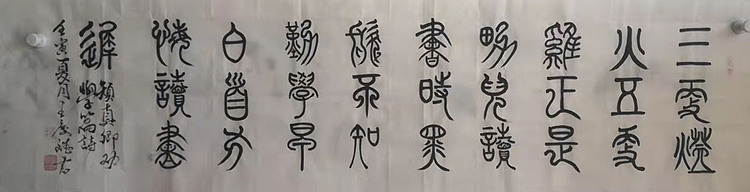 三更燈
火五更
雞正是
男兒讀
書時黑
髮不知
勤學早
白首方
悔讀書
遲
顏真卿勸
學篇詩
壬寅夏月王